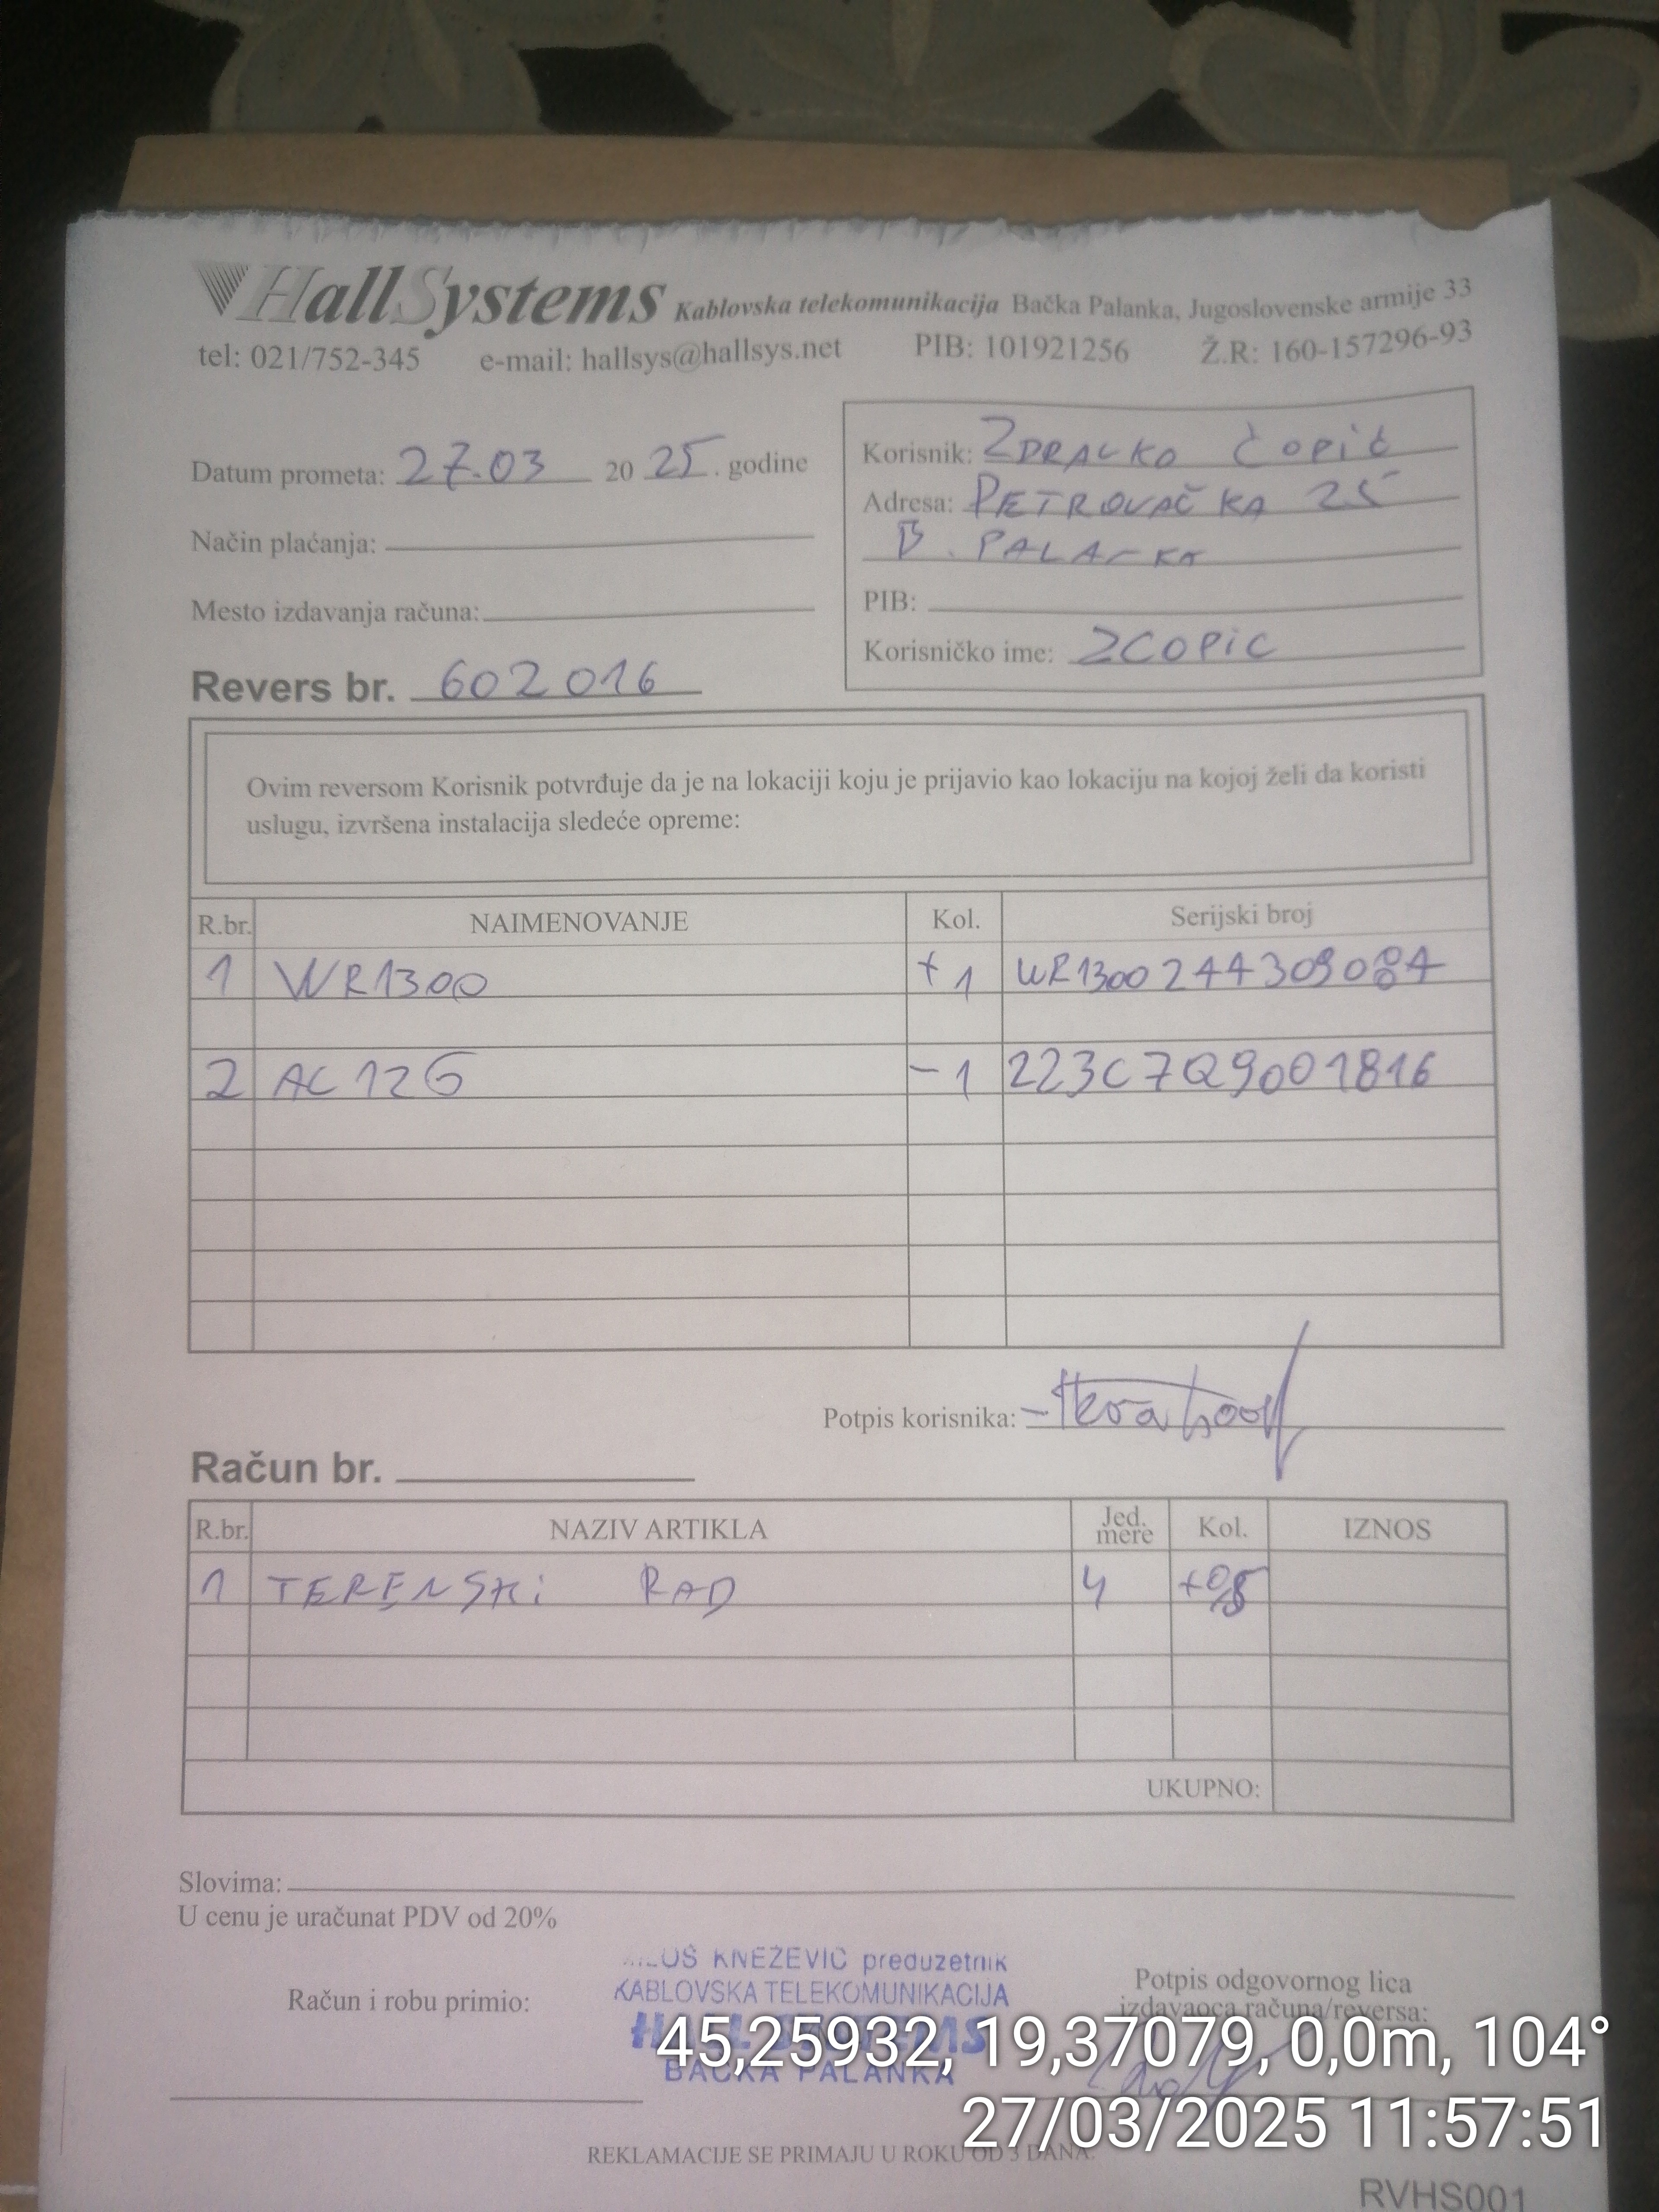 HallSystems Kablovska telekomunikacija Bačka Palanka, Jugoslovenske armije 33
tel: 021/752-345 e-mail: hallsys@hallsys.net PIB: 101921256 Ž.R: 160-157296-93
Datum prometa: 27.03 20 25. godine
Način plaćanja:
Mesto izdavanja računa:
Revers br. 602016
Korisnik: ZDRAVKO ČOPIĆ
Adresa: PETROVAČKA 25
B. PALANKA
PIB:
Korisničko ime: ZCOPIC
Ovim reversom Korisnik potvrđuje da je na lokaciji koju je prijavio kao lokaciju na kojoj želi da koristi
uslugu, izvršena instalacija sledeće opreme:
R.br. NAIMENOVANJE Kol. Serijski broj
1 WR1300 +1 WR1300244309084
2 AC12G -1 223C7Q9001816
Potpis korisnika:
Račun br.
R.br. NAZIV ARTIKLA Jed. mere Kol. IZNOS
1 TERENSKI RAD Č +0,5
UKUPNO:
Slovima:
U cenu je uračunat PDV od 20%
KNEŽEVIĆ preduzetnik
KABLOVSKA TELEKOMUNIKACIJA
HALL SYSTEMS
BAČKA PALANKA
Računi robu primio:
Potpis odgovornog lica
izdavaoca računa/reversa:
45,25932, 19,37079, 0,0m, 104°
27/03/2025 11:57:51
REKLAMACIJE SE PRIMAJU U ROKU OD 3 DANA.
RVHS001